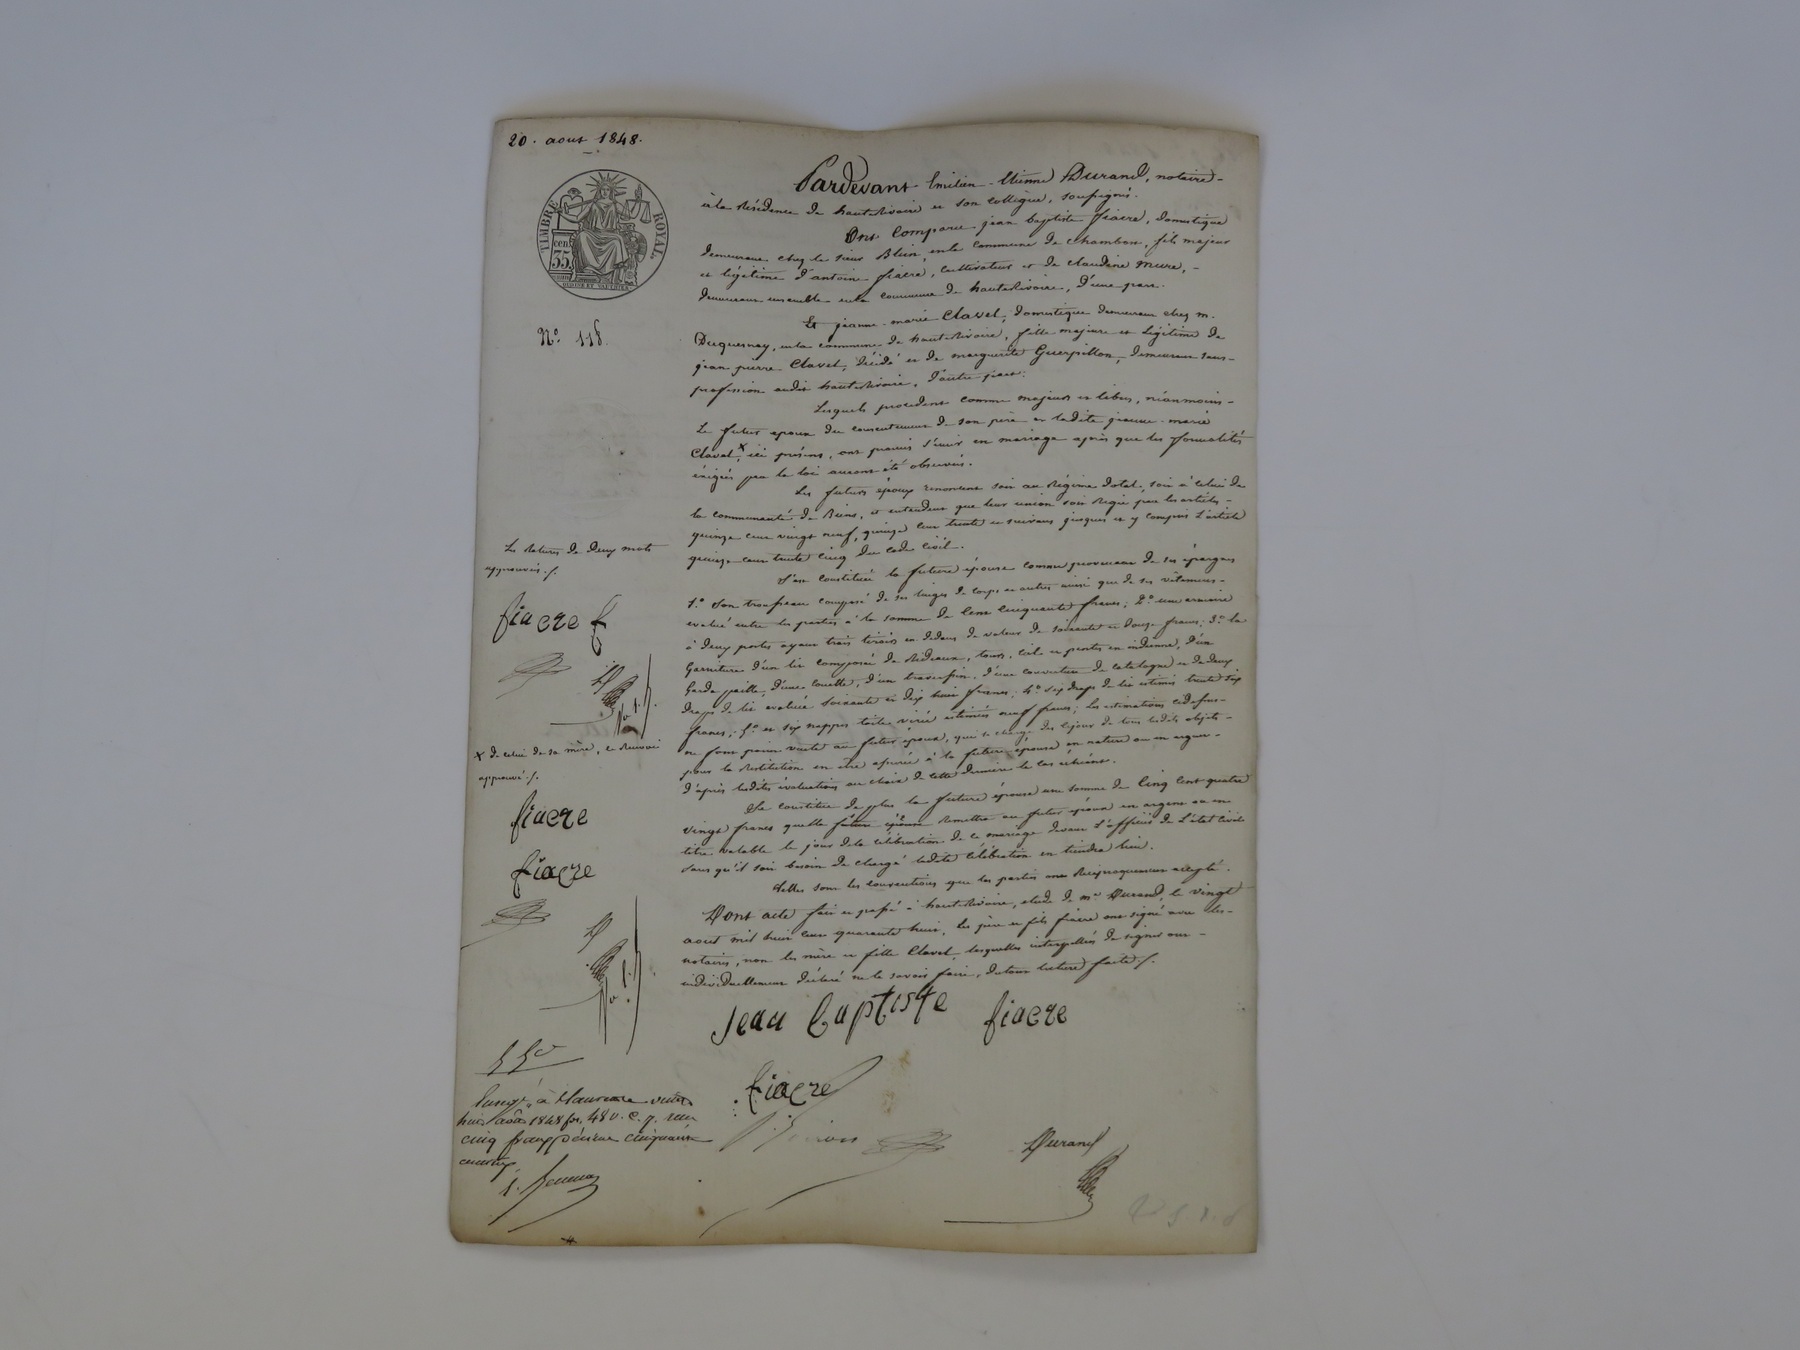 20. aout 1848.
TIMBRE ROYAL.
cen.
35
Pardevant Emilien-Etienne Durand, notaire-
à la Résidence de hauterivoire et son collègue, soussignés.
Ont Comparu jean baptiste fiacre, domestique
demeurant chez le sieur Blein, en la commune de Chambon, fils majeur
et légitime d'antoine fiacre, cultivateur et de claudine mure,-
demeurans ensemble en la commune de hauterivoire, d'une part.
Et jeanne-marie Clavel, domestique demeurant chez m.
Duquesnay, en la commune de hauterivoire, fille majeure et légitime de
jean pierre Clavel, décédé et de marguerite Guerpillon, demeurant sans-
profession audit hauterivoire, d'autre part.
Nº 118.
Lesquels procédant comme majeurs et libres, néanmoins-
Le futur époux du consentement de son père et ladite jeanne-marie
Clavel, x ici présens, ont promis s'unir en mariage après que les formalités
éxigées par la loi auront été observées.
Les futurs époux renoncent soit au régime dotal, soit à celui de
la communauté de Biens, et entendent que leur union soit régie par les articles-
quinze cent vingt neuf, quinze cent trente et suivans jusques et y compris l'article
quinze cent trente cinq du code civil.
S'est constituée la future épouse comme provenant de ses épargnes
1.º Son trousseau composé de ses linges de corps et autres ainsi que de ses vêtemens-
evalué entre les parties à la somme de Cent cinquante francs; 2.º une armoire
à deux portes ayant trois tiroirs en dedans de valeur de soixante et douze francs; 3.º la
Garniture d'un lit composée de Rideaux, tours, ciel et pentes en indienne, d'un
Garde paille, d'une couette, d'un traversin, d'une couverture de catalogne et de deux
draps de lit évaluée soixante et dix huit francs; 4.º six draps de lit estimés trente six
francs; 5.º et six nappes toile virée estimées neuf francs; Les estimations cidessus-
ne font point vente au futur époux, qui se charge dès ce jour de tous lesdits objets-
pour la restitution en être opérée à la future épouse en nature ou en argent-
d'après lesdites évaluations au choix de cette dernière le cas échéant.
Se constitue de plus la future épouse une somme de Cinq Cent quatre
vingt francs quelle future épouse remettra au futur époux en argent ou en
titre valable le jour de la célébration de ce mariage devant l'officier de l'état civil
sans qu'il soit besoin de charge ladite célébration en tiendra lieu.
Telles sont les conventions que les parties ont Réciproquement accepté.
Dont acte fait et passé à hauterivoire, étude de me Durand, le vingt
aout mil huit cent quarante huit, les père et fils fiacre ont signé avec les-
notaires, non les mère et fille Clavel, lesquelles interpellées de signer ont-
individuellement déclaré ne le savoir faire, du tout lecture faite./.
Jean baptiste fiacre
fiacre
Durand
Les Ratures de deux mots
approuvées./.
fiacre f
x de celui de sa mère, ce Renvoi
approuvé./.
fiacre
fiacre
huit août 1848 fo. 48 v. C. 7. reçu
cinq francs